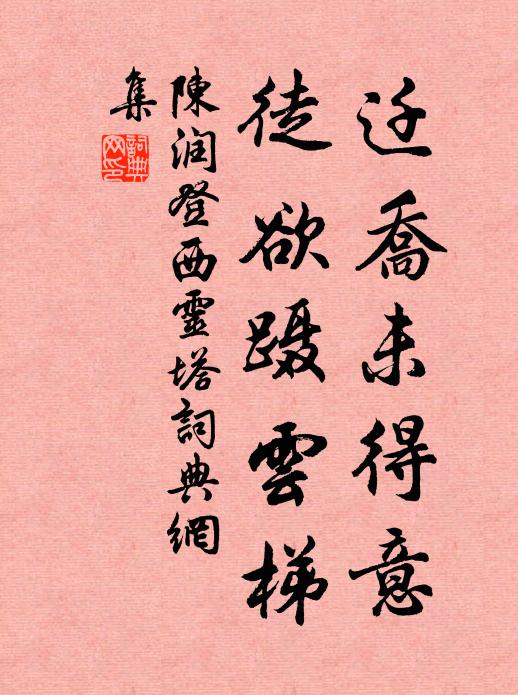 迁喬未得意
徒欲蹑雲梯
陳润登西靈塔詞典網
集
詞典
网印